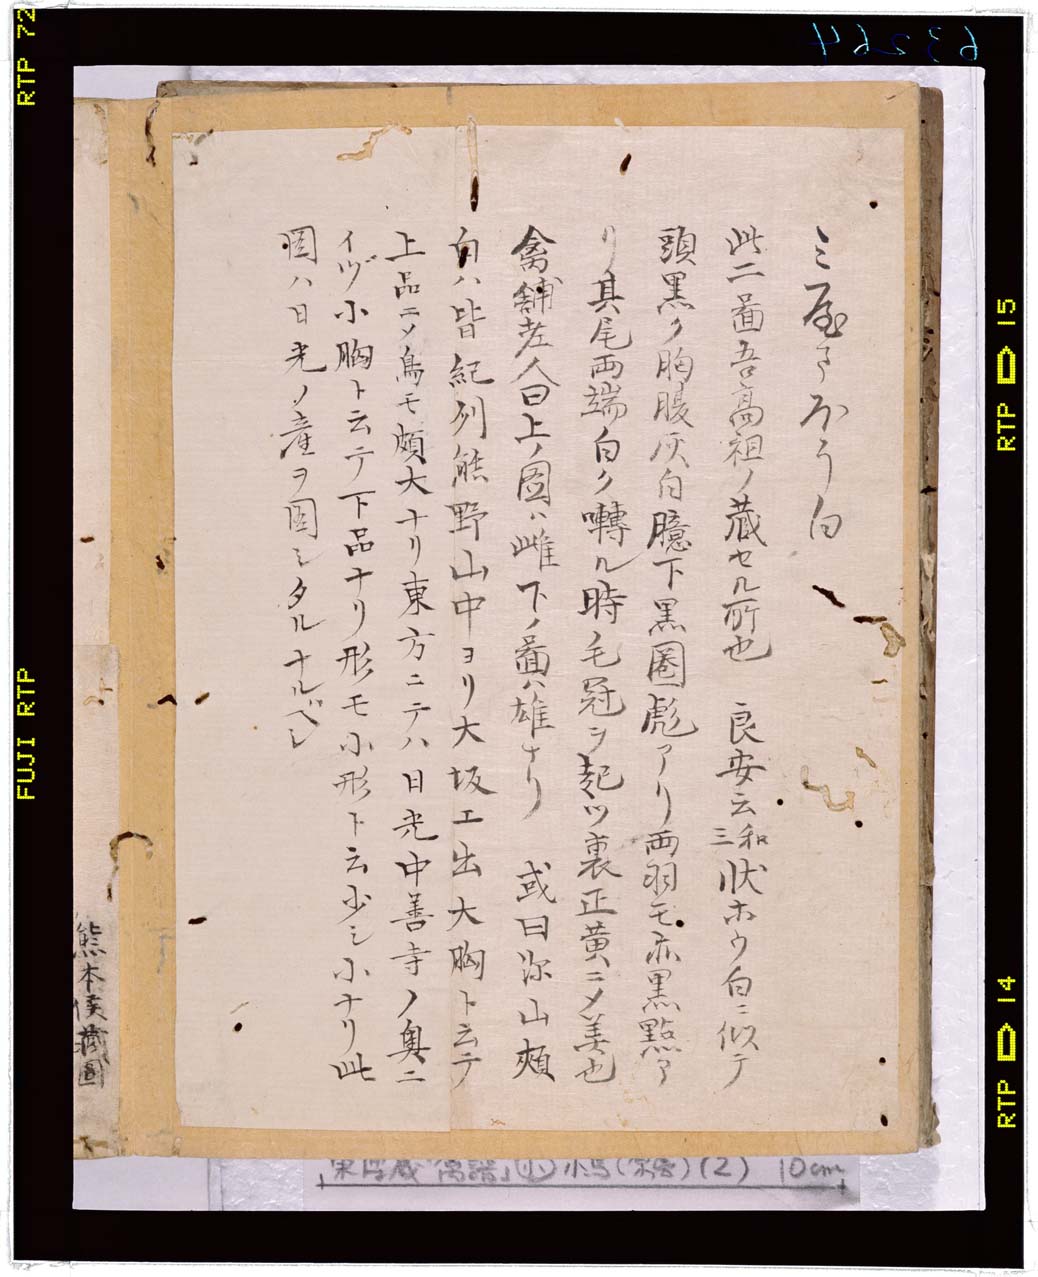 ミ屋まほう白
此二啚吾高祖ノ蔵セル所也 良安云和三状ホウ白ニ似テ
頭黒ク胸腹灰白臆下黒圏彪アリ両羽モ亦黒點ア
リ其尾両端白ク囀ル時毛冠ヲ起ツ裏正黄ニメ美也
禽舗老人曰上ノ圖ハ雌下ノ啚ハ雄ナリ 或曰深山頰
白ハ皆紀列熊野山中ヨリ大坂エ出大胸ト云テ
上品ニメ鳥モ頗大ナリ東方ニテハ日光中善寺ノ奥ニ
イヅ小胸ト云テ下品ナリ形モ小形ト云少シ小ナリ此
圖ハ日光ノ産ヲ圖シタルナルベシ
熊本侯蔵圖
63264
RTP 72
FUJI RTP
RTP 15
RTP 14
(2) 10cm